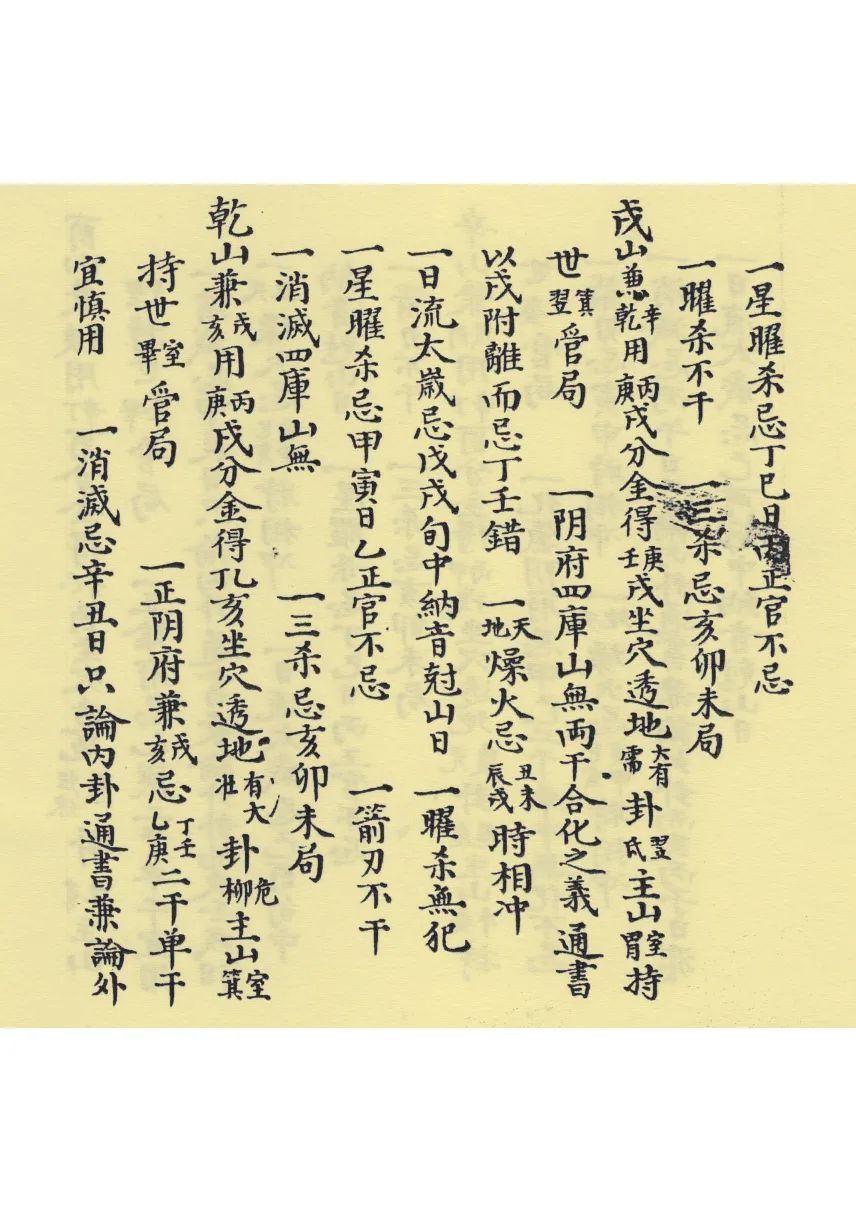 一星曜杀忌丁巳日丙正官不忌
一曜杀不干 一三杀忌亥卯未局
戌山兼辛乾用丙庚戌分金得庚壬戌坐穴透地大有需卦翌氐主山室胃持
世箕翌管局 一阴府四庫山無両干合化之義通書
以戌附離而忌丁壬錯 一天地燥火忌丑未辰戌時相冲
一日流太歲忌戊戌旬中納音尅山日 一曜杀無犯
一星曜杀忌甲寅日乙正官不忌 一箭刃不干
一消滅四庫山無 一三杀忌亥卯未局
乾山兼戌亥用丙庚戌分金得丁乙亥坐穴透地大有大壯卦危柳主山室箕
持世室畢管局 一正阴府兼戌亥忌丁壬乙庚二干单干
宜慎用 一消滅忌辛丑日只論内卦通書兼論外